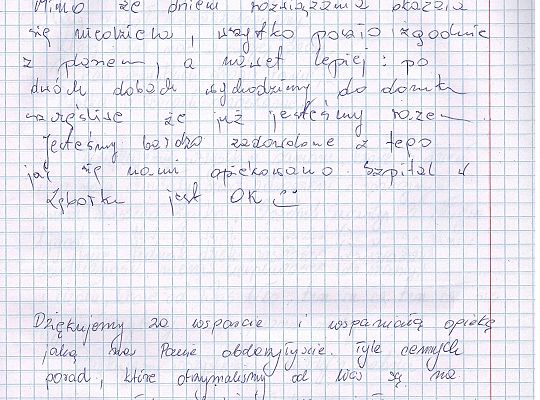 Mimo że dniem rozwiązania okazała
się niedziela, wszytko poszło zgodnie
z planem, a nawet lepiej: po
dwóch dobach wychodzimy do domku
szczęśliwe że już jesteśmy razem.
Jesteśmy bardzo zadowolone z tego
jak się nami opiekowano. Szpital w
Lęborku jest OK
Dziękujemy za wsparcie i wspaniałą opiekę
jaką nas Panie obdarzyłyście. Tyle cennych
porad, które otrzymaliśmy od Was są na